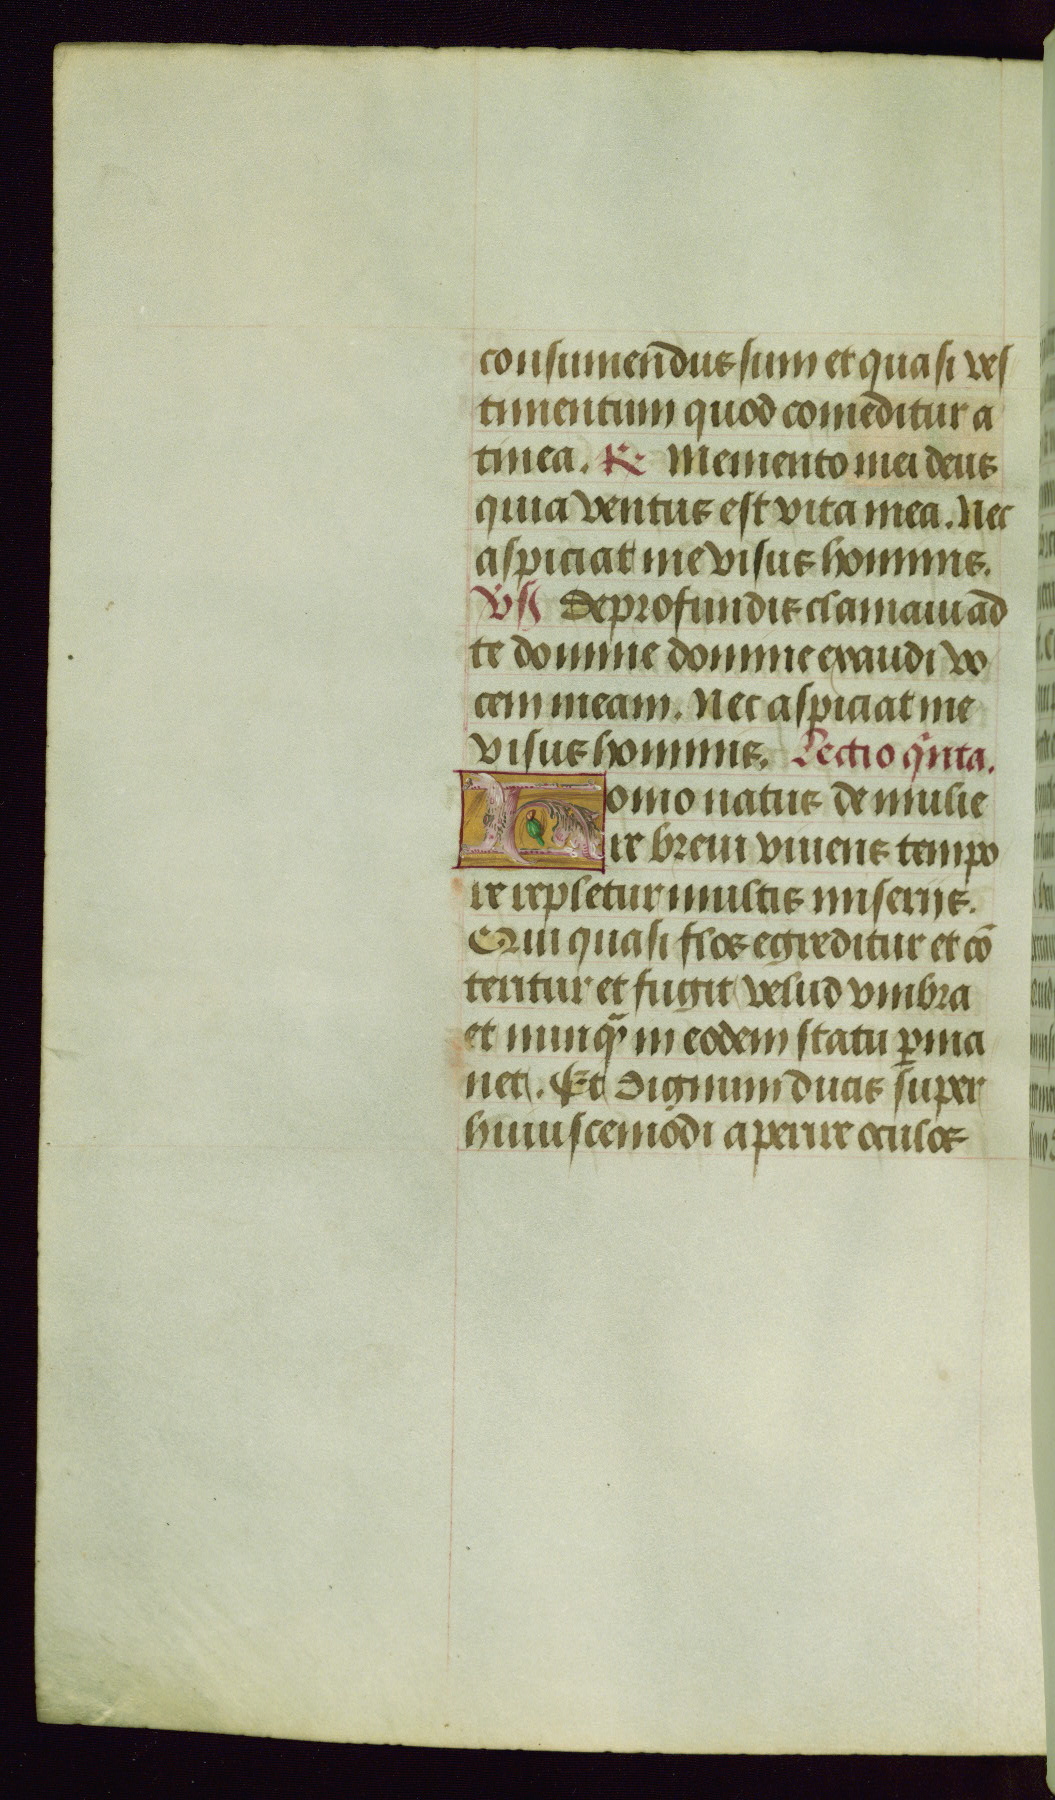 consumendus sum et quasi ves
timentum quod comeditur a
tinea. R. Memento mei deus
quia ventus est vita mea. Nec
aspiciat me visus hominis.
Vs De profundis clamaui ad
te domine domine exaudi vo
cem meam. Nec aspiciat me
visus hominis. Lectio qͥnta.
Homo natus de mulie
re breui viuens tempo
re repletur multis miserijs.
Qui quasi flos egreditur et cō
teritur et fugit velud vmbra
et nunqᷓ in eodem statu ꝑma
net. Et dignum ducis super
huiuscemodi aperire oculos